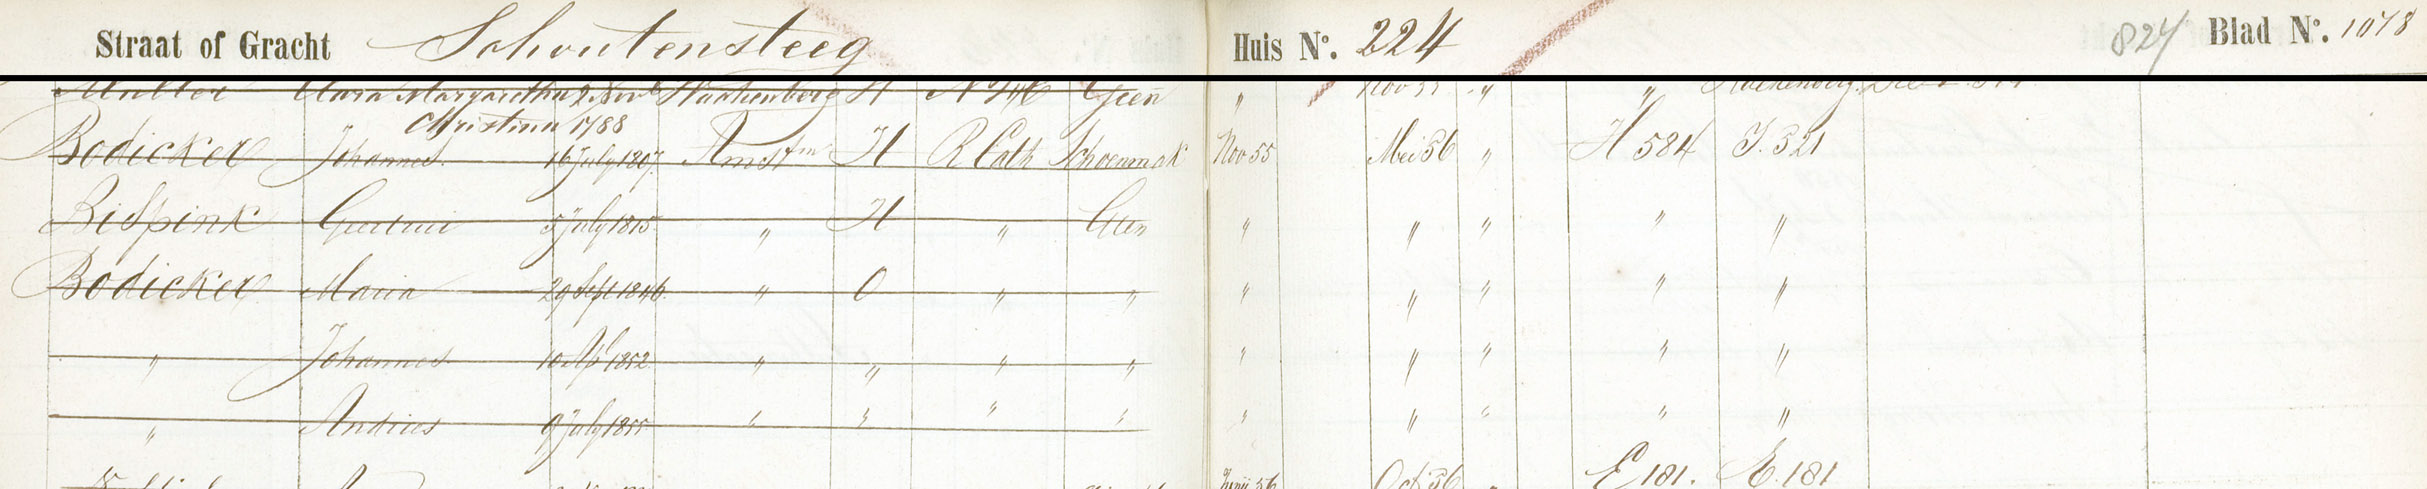 Straat of Gracht Schoutensteeg Huis No. 224 824 Blad No. 1078
Muller Clara Margaretha 9 Nov H N Geen " Nov 55 " "
Christina 1788
Bodicker Johannes 16 July 1807 Amstm H R Cath Schoenmak Nov 55 Mei 56 " H 584 I. 321
Bispink Geertrui 5 July 1815 " H " Geen " " " " "
Bodicker Maria 29 Sept 1846 " O " " " " " " "
" Johannes 10 Ap 1852 " " " " " " " " "
" Andries 9 July 1855 " " " " " " " " "
Junij 56 Oct 56 " E 181. E. 181